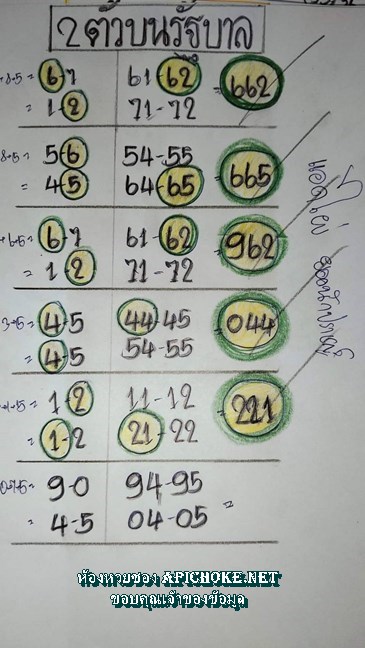 2 ตัวบนรัฐบาล
8-5= 6-7 61-62 = 662
= 1-2 71-72
8-5= 5-6 54-55 = 665
= 4-5 64-65
6-5= 6-7 61-62 = 962
= 1-2 71-72
3-5= 4-5 44-45 = 044
= 4-5 54-55
1-5= 1-2 11-12 = 221
= 1-2 21-22
9-0 94-95 =
= 4-5 04-05
ห้องหวยซอง APICHOKE.NET
ขอบคุณเจ้าของข้อมูล